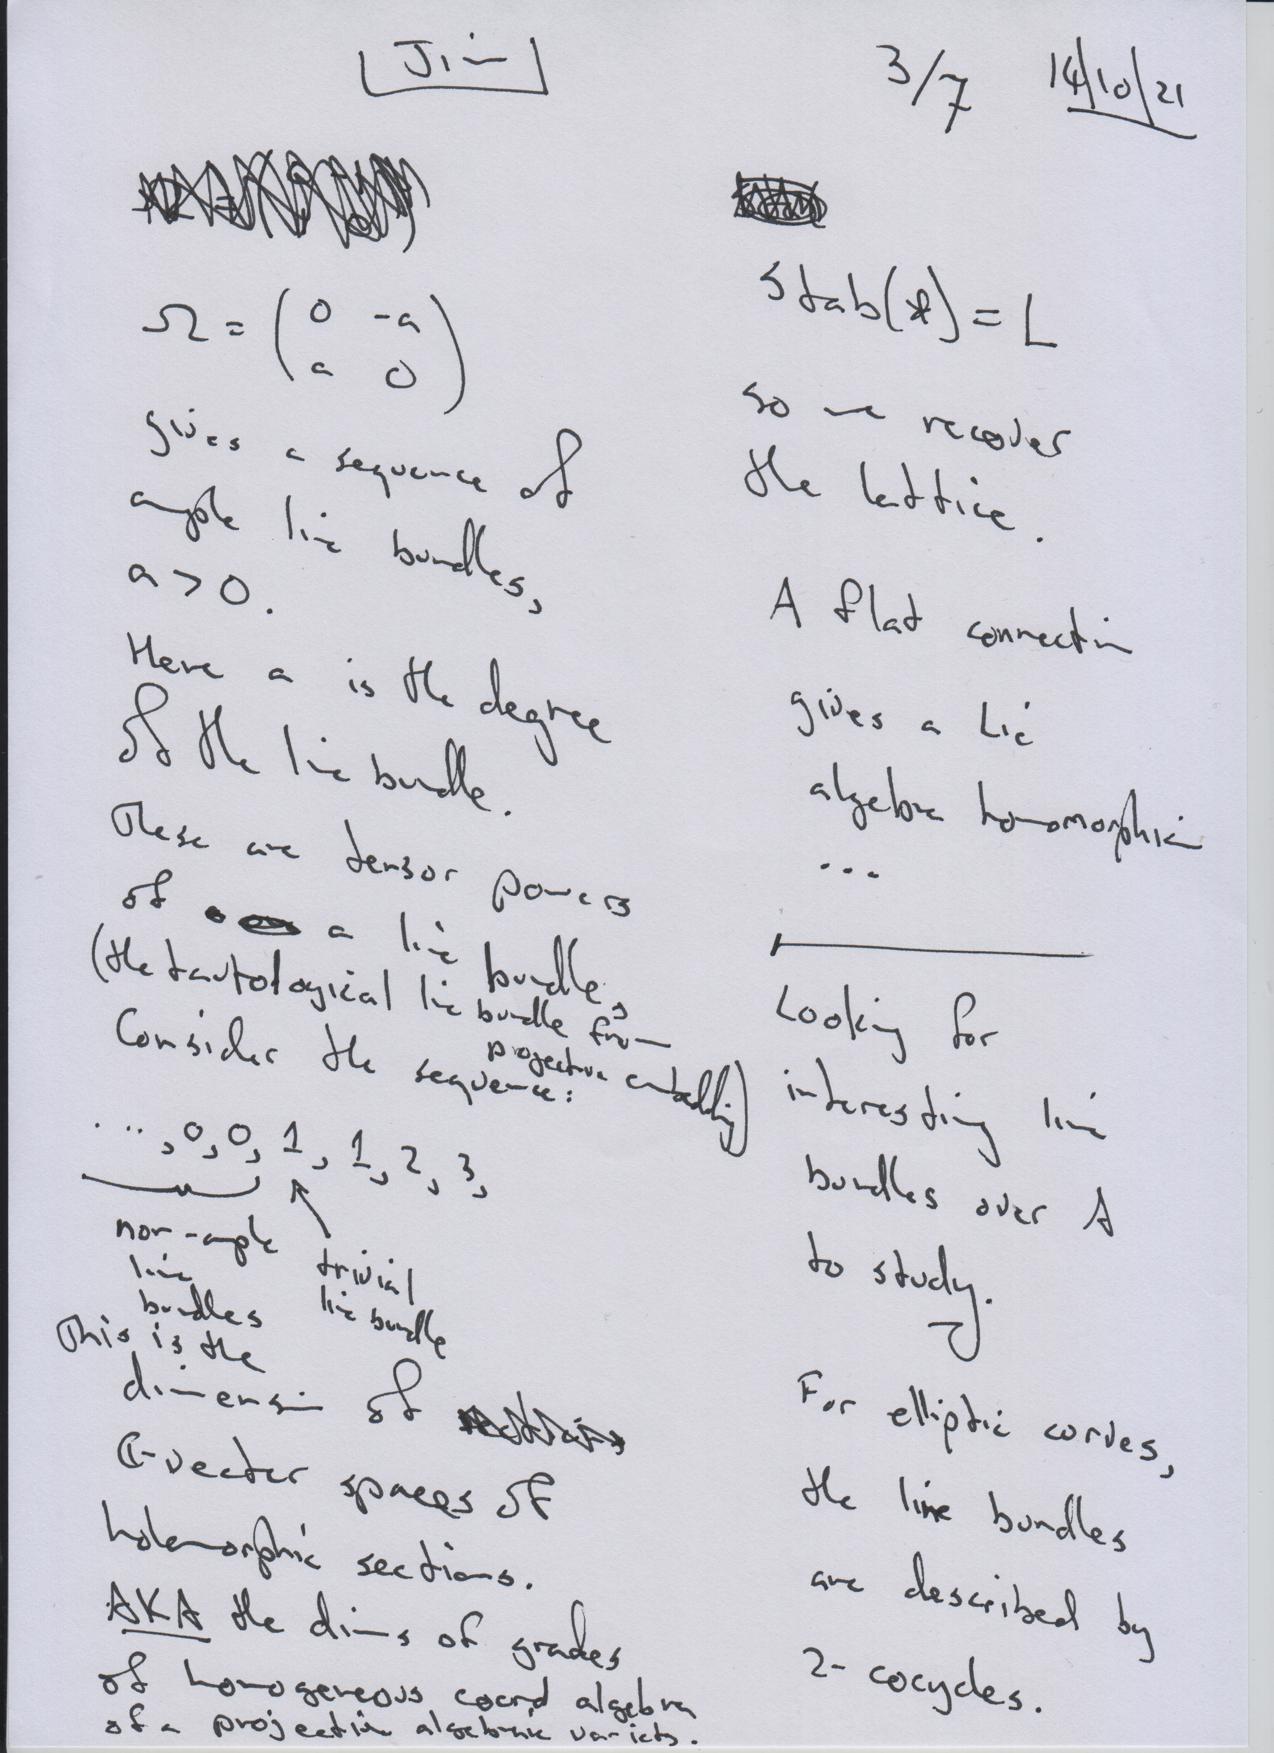 Jim
3/7 14/10/21
Ω = ( 0 -a
a 0 )
gives a sequence of
ample line bundles,
a > 0.
Here a is the degree
of the line bundle.
These are tensor powers
of a line bundle,
(the tautological line bundle from
projective embedding)
Consider the
sequence:
..., 0, 0, 1, 1, 2, 3,
non-ample
line
bundles
trivial
line bundle
This is the
dimension of
ℂ-vector spaces of
holomorphic sections.
AKA the dims of grades
of homogeneous coord algebra
of a projective algebraic variety.
Stab(*) = L
so we recover
the lattice.
A flat connection
gives a Lie
algebra homomorphism
...
Looking for
interesting line
bundles over A
to study.
For elliptic curves,
the line bundles
are described by
2-cocycles.